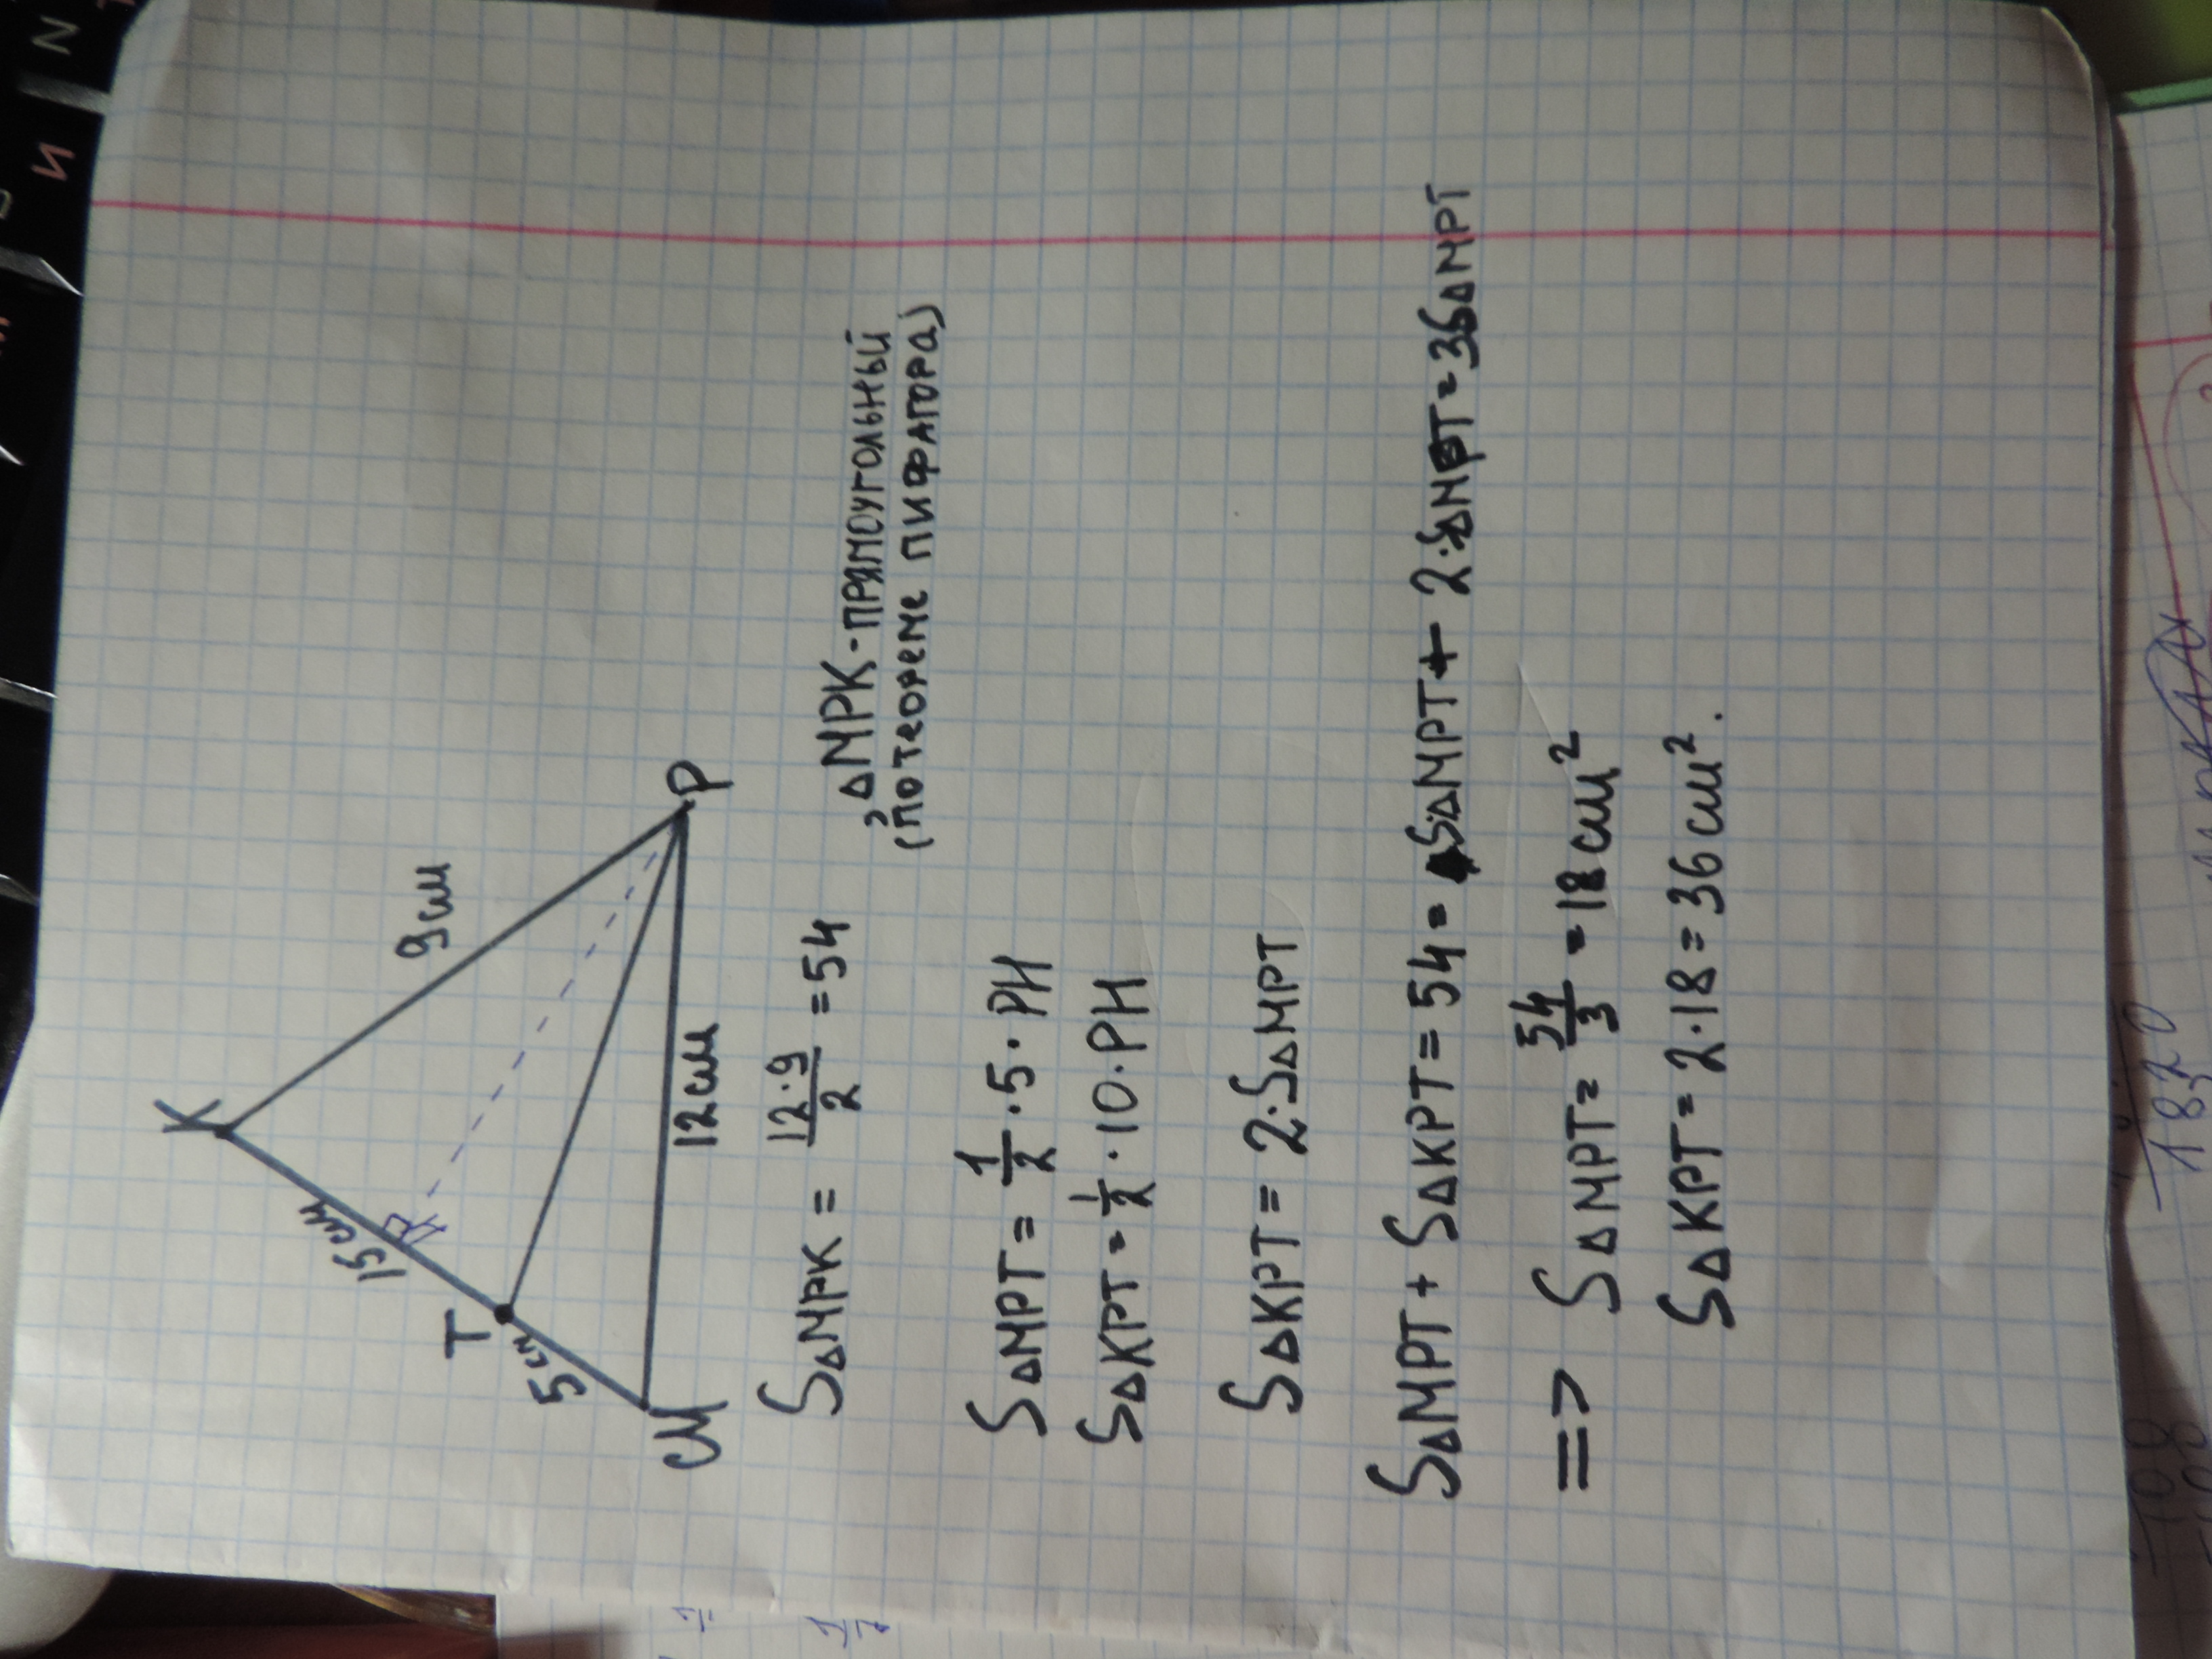 K
9 см
15 см
T
5 см
M
12 см
P
S△MPK = 12·9/2 = 54 , △MPK - ПРЯМОУГОЛЬНЫЙ
(по теореме ПИФАГОРА)
S△MPT = 1/2 · 5 · PH
S△KPT = 1/2 · 10 · PH
S△KPT = 2·S△MPT
S△MPT + S△KPT = 54 = S△MPT + 2·S△MPT = 3S△MPT
=> S△MPT = 54/3 = 18 см²
S△KPT = 2·18 = 36 см².
1820